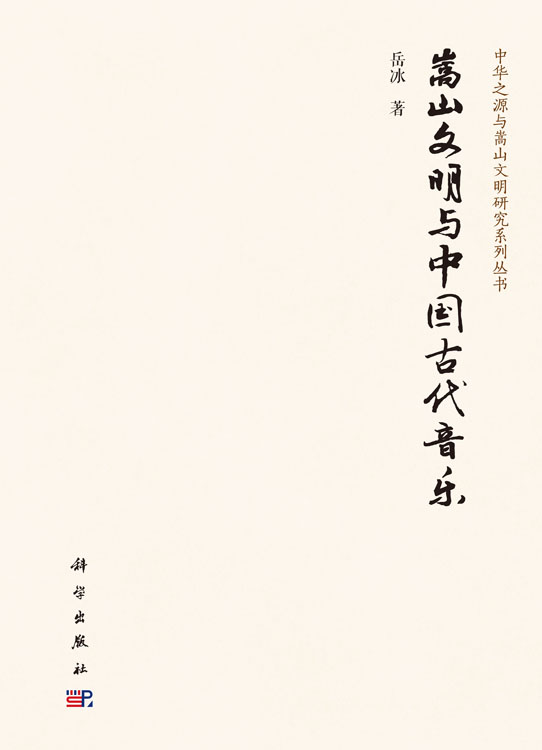 中华之源与嵩山文明研究系列丛书
嵩山文明与中国古代音乐
岳冰 著
科学出版社